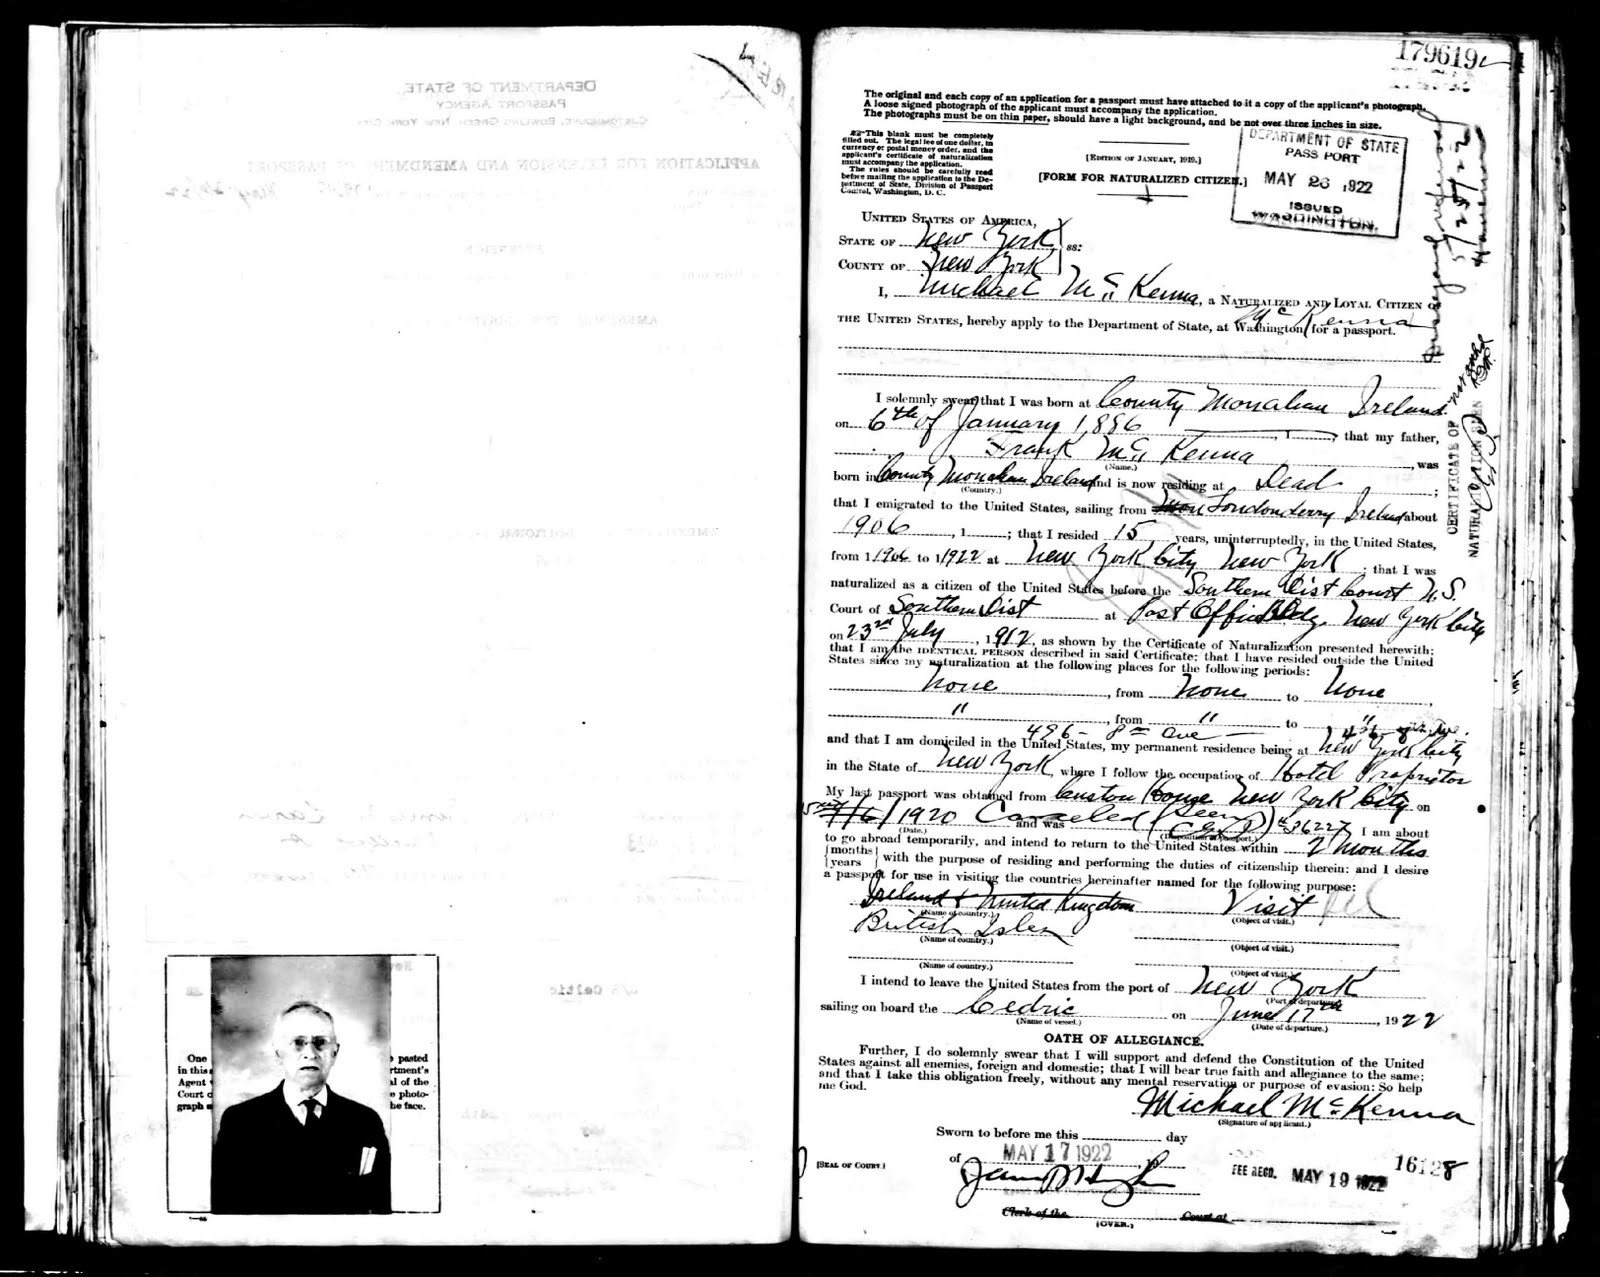 179619
The original and each copy of an application for a passport must have attached to it a copy of the applicant's photograph.
A loose signed photograph of the applicant must accompany the application.
The photographs must be on thin paper, should have a light background, and be not over three inches in size.
This blank must be completely
filled out. The legal fee of one dollar, in
currency or postal money order, and the
applicant's certificate of naturalization
must accompany the application.
The rules should be carefully read
before mailing the application to the De-
partment of State, Division of Passport
Control, Washington, D. C.
[EDITION OF JANUARY, 1919.]
[FORM FOR NATURALIZED CITIZEN.]
DEPARTMENT OF STATE
PASSPORT
MAY 26 1922
ISSUED
WASHINGTON.
5/25/22
UNITED STATES OF AMERICA,
STATE OF New York
ss:
COUNTY OF New York
I, Michael Mc Kenna, a NATURALIZED AND LOYAL CITIZEN OF
McKenna
THE UNITED STATES, hereby apply to the Department of State, at Washington, for a passport.
I solemnly swear that I was born at County Monahan Ireland
on 6th of January 1,886, 1, that my father,
Frank Mc Kenna, was
(Name.)
born in County Monahan Ireland and is now residing at Dead;
(Country.)
that I emigrated to the United States, sailing from Londonderry Ireland about
1906, 1; that I resided 15 years, uninterruptedly, in the United States,
from 1 1906 to 1 1922 at New York City New York; that I was
naturalized as a citizen of the United States before the Southern Dist Court U.S.
Court of Southern Dist at Post Office Bldg. New York City
on 23rd July, 1912, as shown by the Certificate of Naturalization presented herewith;
that I am the IDENTICAL PERSON described in said Certificate; that I have resided outside the United
States since my naturalization at the following places for the following periods:
None, from None to None,
" , from " to "
496 - 8th Ave
and that I am domiciled in the United States, my permanent residence being at New York City
in the State of New York, where I follow the occupation of Hotel Proprietor
My last passport was obtained from Custom House New York City on
1920 and was Canceled 86227 I am about
(Date.) (Disposition of passport.)
to go abroad temporarily, and intend to return to the United States within 2 months
{months
years} with the purpose of residing and performing the duties of citizenship therein; and I desire
a passport for use in visiting the countries hereinafter named for the following purpose:
Ireland & United Kingdom Visit
(Name of country.) (Object of visit.)
British Isles
(Name of country.) (Object of visit.)
(Name of country.) (Object of visit.)
I intend to leave the United States from the port of New York
(Port of departure.)
sailing on board the Cedric on June 17th, 1922
(Name of vessel.) (Date of departure.)
OATH OF ALLEGIANCE.
Further, I do solemnly swear that I will support and defend the Constitution of the United
States against all enemies, foreign and domestic; that I will bear true faith and allegiance to the same;
and that I take this obligation freely, without any mental reservation or purpose of evasion: So help
me God.
Michael McKenna
(Signature of applicant.)
Sworn to before me this day
of MAY 17 1922
[SEAL OF COURT.]
FEE RECD. MAY 19 1922
16128
Clerk of the Court at
(OVER.)
CERTIFICATE OF
NATURALIZATION
DEPARTMENT OF STATE
PASSPORT AGENCY
CUSTOMHOUSE, BOWLING GREEN, NEW YORK CITY
APPLICATION FOR EXTENSION AND AMENDMENT OF PASSPORT
Celtic
One pasted
in this rtment's
Agent al of the
Court photo-
graph he face.